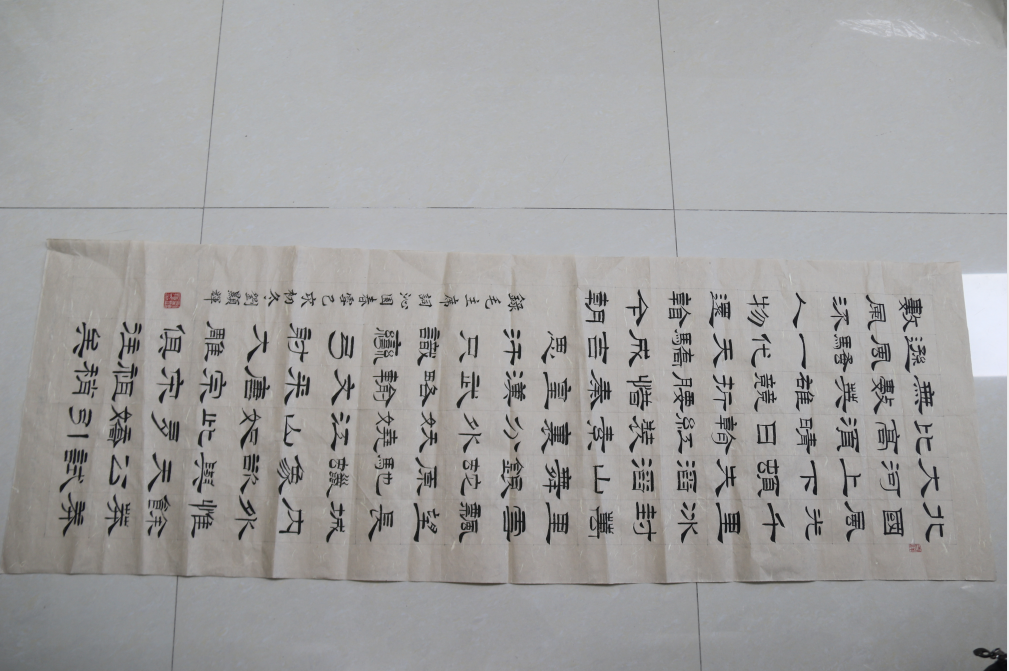 北國風光千里冰封萬里雪飄望長城內外惟餘莽莽
大河上下頓失滔滔山舞銀蛇原馳蠟象欲與天公試
比高須晴日看紅裝素裹分外妖嬈江山如此多嬌引
無數英雄競折腰惜秦皇漢武略輸文采唐宗宋祖稍
遜風騷一代天驕成吉思汗只識彎弓射大雕俱往矣
數風流人物還看今朝
錄毛主席詞沁園春雪己亥初冬劉顯輝